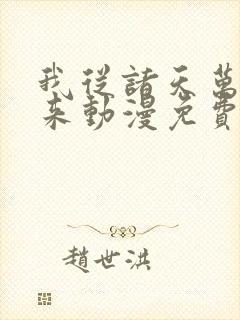 我從諸天萬
來動漫免費
趙世洪